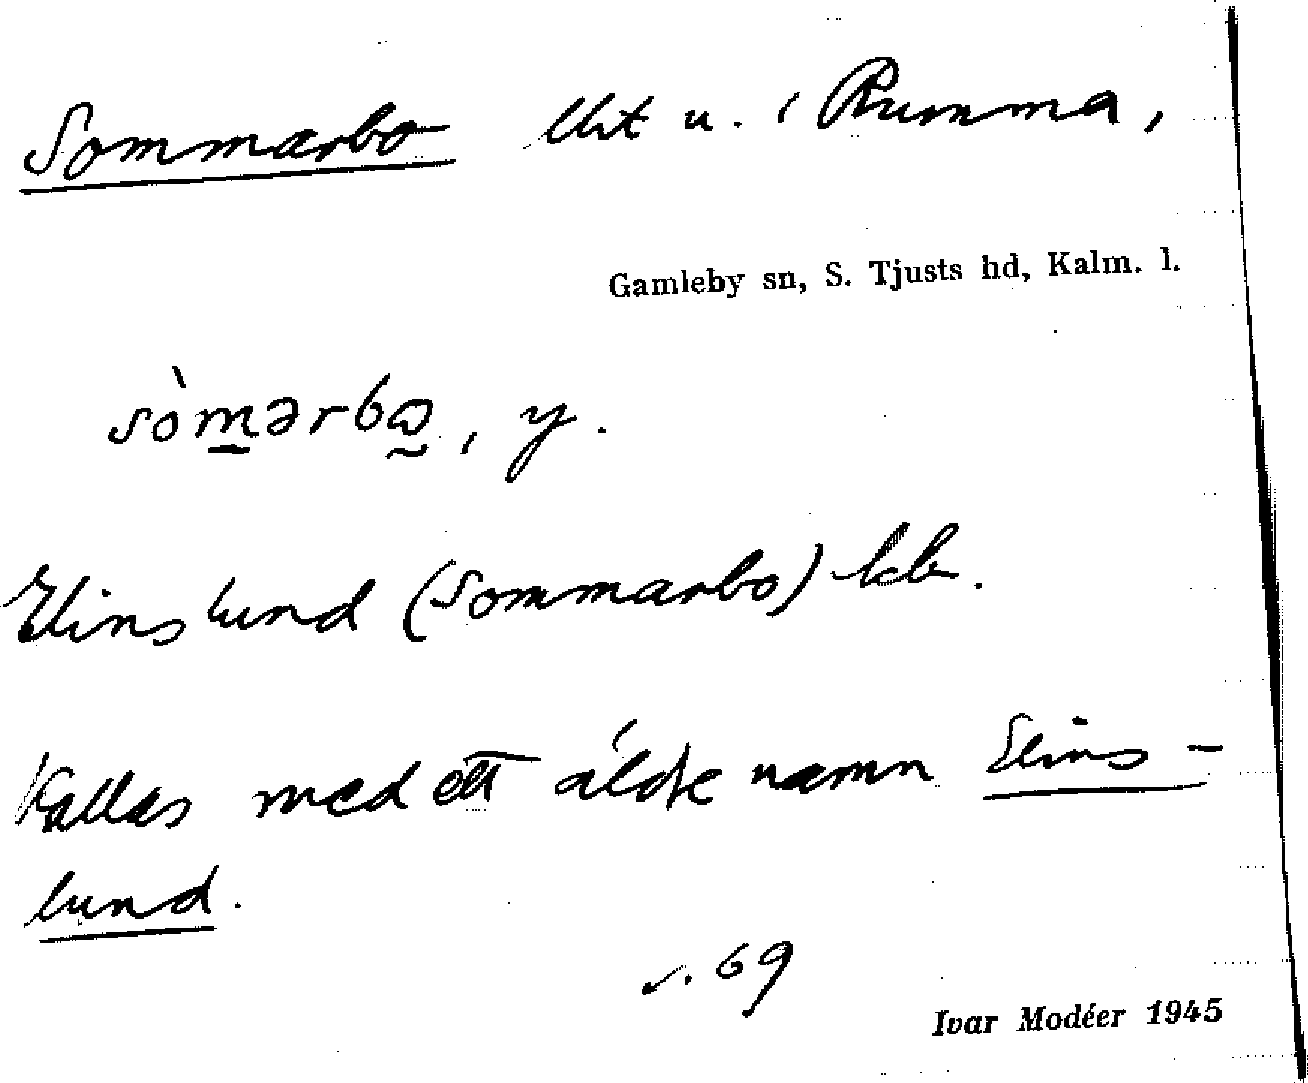 Sommarbo lht u. i Rumma,
Gamleby sn, S. Tjusts hd, Kalm. l.
sòmərbω, y.
Elinslund (Sommarbo) kb.
Kallas med ett äldre namn Elins-
lund.
s. 69
Ivar Modéer 1945